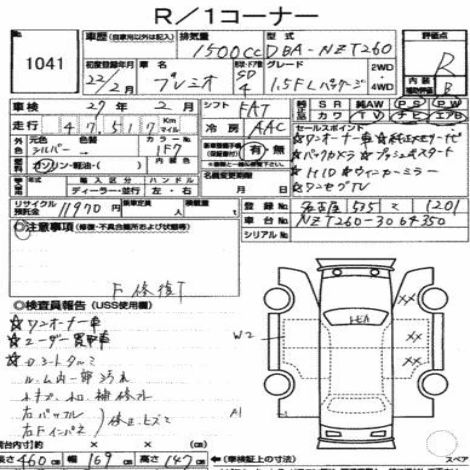 R／1コーナー
1041
車歴 (自家用以外は記入) 排気量 型式 評価点
1500cc DBA-NZT260 R
初度登録年月 車名 ドア形状 グレード 2WD・4WD 内装 補助評価 B
22/2月 プレミオ SD 4 1.5F Lパッケージ
車検 27年 2月 シフト FAT
走行 47,517 Km マイル 冷房 AAC
純正品 SR 純AW PS PW
カワ TV ナビ エアB
外元色 シルバー 色替 1F7
燃料 ガソリン・軽油・( ) 新車整備手帳(保証書) 有・無
セールスポイント
☆ワンオーナー車☆純正メモリーナビ
☆バックカメラ☆プッシュスタート
☆HID☆ウィンカーミラー
☆ワンセグTV
名義変更期限 年 月 日
輸入車 ディーラー・並行 ハンドル 左・右
リサイクル預託金 11970円 乗車定員 人 積載量
登録No. 名古屋 535 て 1201
車台No. NZT260-3064350
シリアルNo.
◎注意事項 (修復・不具合箇所および状態等)
F修復T
◎検査員報告 (USS使用欄)
☆ワンオーナー車
☆ユーザー買取車
ルーム内一部汚れ
右Fインパネ 修正、ヒズミ
W2 A1 XX XX
荷台内寸 × ×
長さ 460 cm 幅 169 cm 高さ 147 cm (車検証上の寸法)
スペア